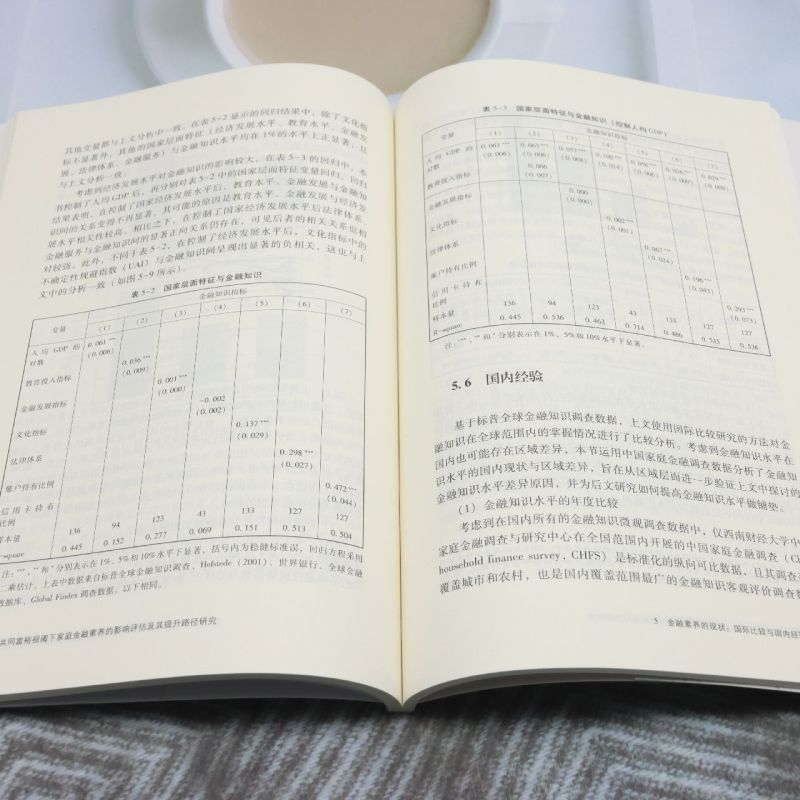 其他变量都与上文分析中一致。在表5-2显示的回归结果中，除了文化指
标不显著外，其他的国家层面特征（经济发展水平、教育水平、金融发
展、法律体系、金融服务）与金融知识水平均在1%的水平上正显著，且
与上文分析一致。
考虑到经济发展水平对金融知识的影响较大，在表5-3的回归中，本
书控制了人均GDP后，再分别对表5-2中的国家层面特征变量回归。回归
结果表明，在控制了国家经济发展水平后，教育水平、金融发展与金融知
识间的关系变得不再显著，其可能的原因是教育水平、金融发展与经济发
展水平相关性较高。相比之下，在控制了国家经济发展水平后法律体系、
金融服务与金融知识间的显著正向关系仍存在，可见后者的相关关系也相
对较强。此外，不同于表5-2，在控制了经济发展水平后，文化指标中的
不确定性规避指数（UAI）与金融知识间呈现出显著的负相关，这也与上
文中的分析一致（如图5-9所示）。
表5-2 国家层面特征与金融知识
金融知识指标
变量 （1） （2） （3） （4） （5） （6） （7）
人均GDP的对数 0.061*** (0.006)
教育投入指标 0.036*** (0.009)
金融发展指标 0.001*** (0.000)
文化指标 -0.002 (0.002)
法律体系 0.137*** (0.029)
账户持有比例 0.298*** (0.027)
信用卡持有比例 0.472*** (0.044)
样本量 136 94 123 43 133 127 127
R-square 0.445 0.152 0.277 0.069 0.151 0.513 0.504
注：***、**和*分别表示在1%、5%和10%水平下显著，括号内为稳健标准误，回归方程采用
二乘估计。上表中数据来自标普全球金融知识调查、Hofstede（2001）、世界银行、全球金融
数据库、Global Findex调查数据，以下相同。
共同富裕视阈下家庭金融素养的影响评估及其提升路径研究
表5-3 国家层面特征与金融知识（控制人均GDP）
金融知识指标
变量 （1） （2） （3） （4） （5） （6） （7）
人均GDP的对数 0.061*** (0.006) (0.006) (0.008)
教育投入指标 0.006 (0.007)
金融发展指标 0.000 (0.000)
文化指标 -0.002** (0.001)
法律体系 0.067*** (0.024)
账户持有比例 0.196*** (0.045)
信用卡持有比例 0.293*** (0.073)
样本量 136 94 123 43 133 127 127
R-square 0.445 0.536 0.463 0.714 0.486 0.535 0.536
注：***、**和*分别表示在1%、5%和10%水平下显著。
5.6 国内经验
基于标普全球金融知识调查数据，上文使用国际比较研究的方法对金
融知识在全球范围内的掌握情况进行了比较分析。考虑到金融知识水平在
国内也可能存在区域差异，本节运用中国家庭金融调查数据分析了金融知
识水平的国内现状与区域差异，旨在从区域层面进一步验证上文中探讨的
金融知识水平差异原因，并为后文研究如何提高金融知识水平做铺垫。
（1）金融知识水平的年度比较
考虑到在国内所有的金融知识微观调查数据中，仅西南财经大学中
家庭金融调查与研究中心在全国范围内开展的中国家庭金融调查（Ch
household finance survey, CHFS）是标准化的纵向可比数据，且其调查
覆盖城市和农村，也是国内覆盖范围最广的金融知识客观评价调查数
5 金融素养的现状：国际比较与国内经